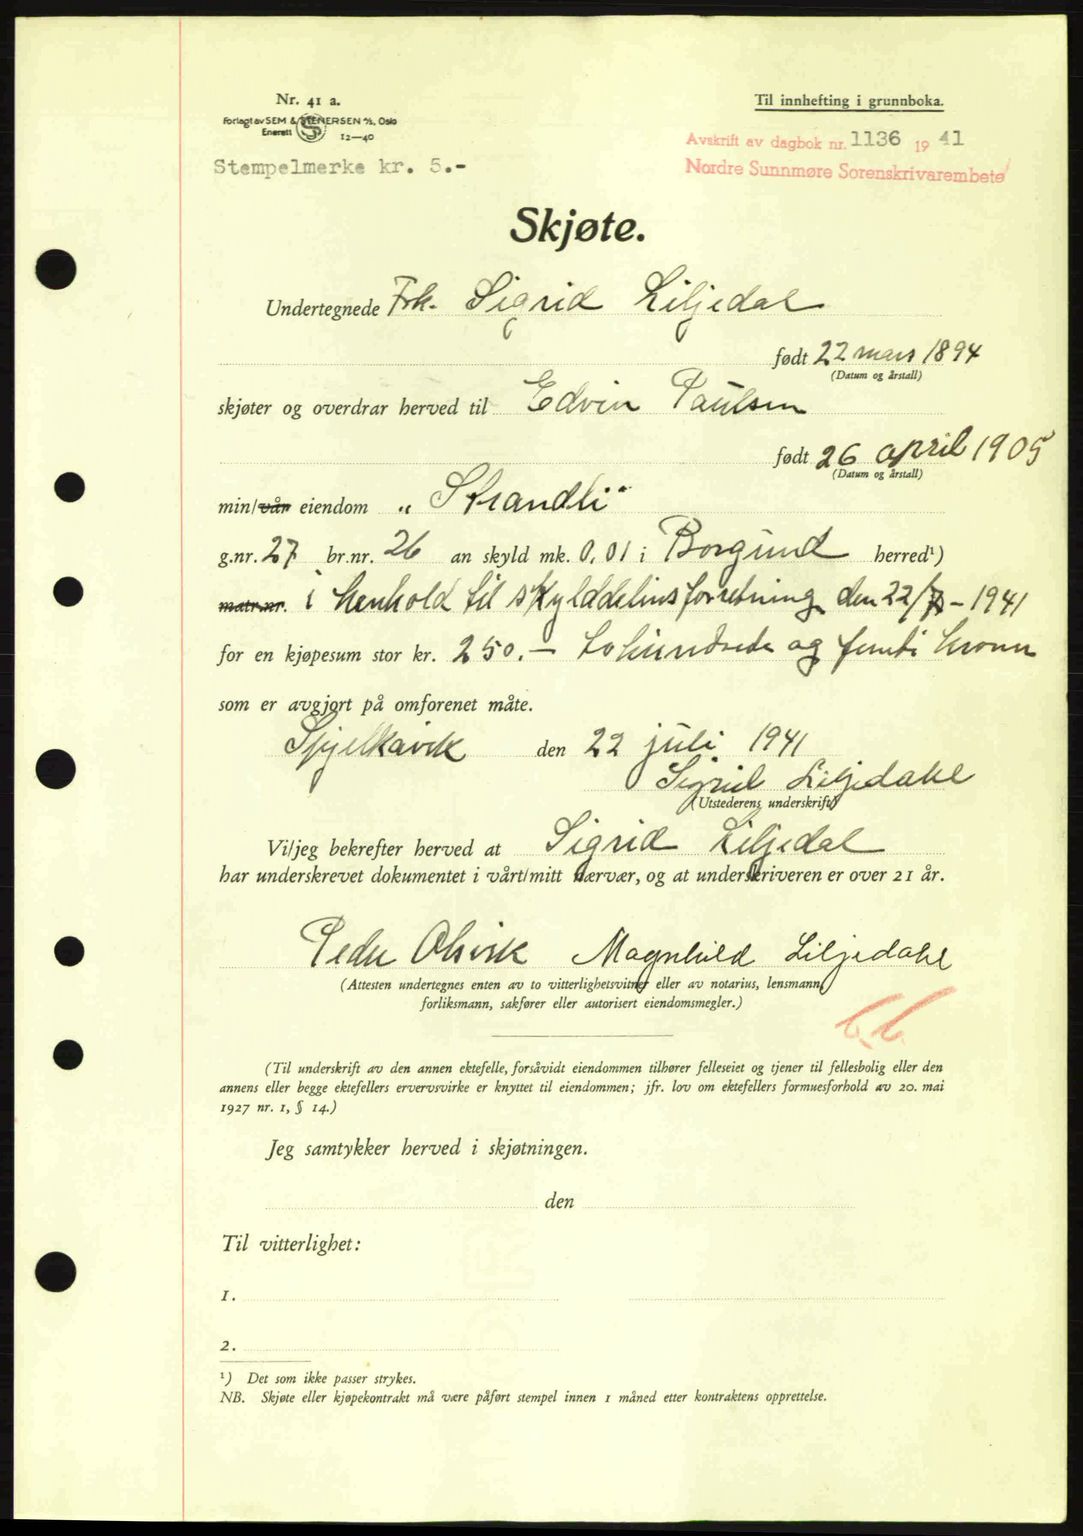 Nr. 41 a.
Forlagt av SEM & STENERSEN A/S, Oslo
Enerett 12—40
Stempelmerke kr. 5.-
Til innhefting i grunnboka.
Avskrift av dagbok nr. 1136 19 41
Nordre Sunnmøre Sorenskrivarembete
Skjøte.
Undertegnede Frk. Sigrid Liljedal
født 22 mars 1894
(Datum og årstall)
skjøter og overdrar herved til Edvin Paulsen
født 26 april 1905
(Datum og årstall)
min/vår eiendom „Strandli"
g.nr. 27 br.nr. 26 an skyld mk. 0,01 i Borgund herred¹)
matr.nr. i henhold til skylddelinsforretning den 22/7 - 1941
for en kjøpesum stor kr. 250.— tohundrede og femti kroner
som er avgjort på omforenet måte.
Spjelkavik den 22 juli 1941
Sigrid Liljedahl
(Utstederens underskrift)
Vi/jeg bekrefter herved at Sigrid Liljedal
har underskrevet dokumentet i vårt/mitt nærvær, og at underskriveren er over 21 år.
Peder Olsvik Magnhild Liljedahl
(Attesten undertegnes enten av to vitterlighetsvitner eller av notarius, lensmann,
forliksmann, sakfører eller autorisert eiendomsmegler.)
(Til underskrift av den annen ektefelle, forsåvidt eiendommen tilhører felleseiet og tjener til fellesbolig eller den
annens eller begge ektefellers ervervsvirke er knyttet til eiendommen; jfr. lov om ektefellers formuesforhold av 20. mai
1927 nr. 1, § 14.)
Jeg samtykker herved i skjøtningen.
den
Til vitterlighet:
1.
2.
¹) Det som ikke passer strykes.
NB. Skjøte eller kjøpekontrakt må være påført stempel innen 1 måned etter kontraktens opprettelse.